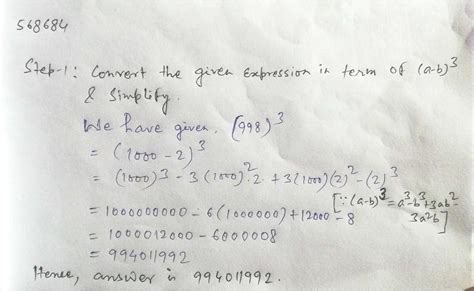 568684
Step-1: Convert the given expression in term of (a-b)³
& Simplify.
We have given, (998)³
= (1000-2)³
= (1000)³ - 3(1000)²·2 + 3(1000)(2)² - (2)³
[∵ (a-b)³ = a³-b³+3ab²
= 1000000000 - 6(1000000) + 12000 - 8
3a²b]
= 1000012000 - 6000008
= 994011992
Hence, answer is 994011992.